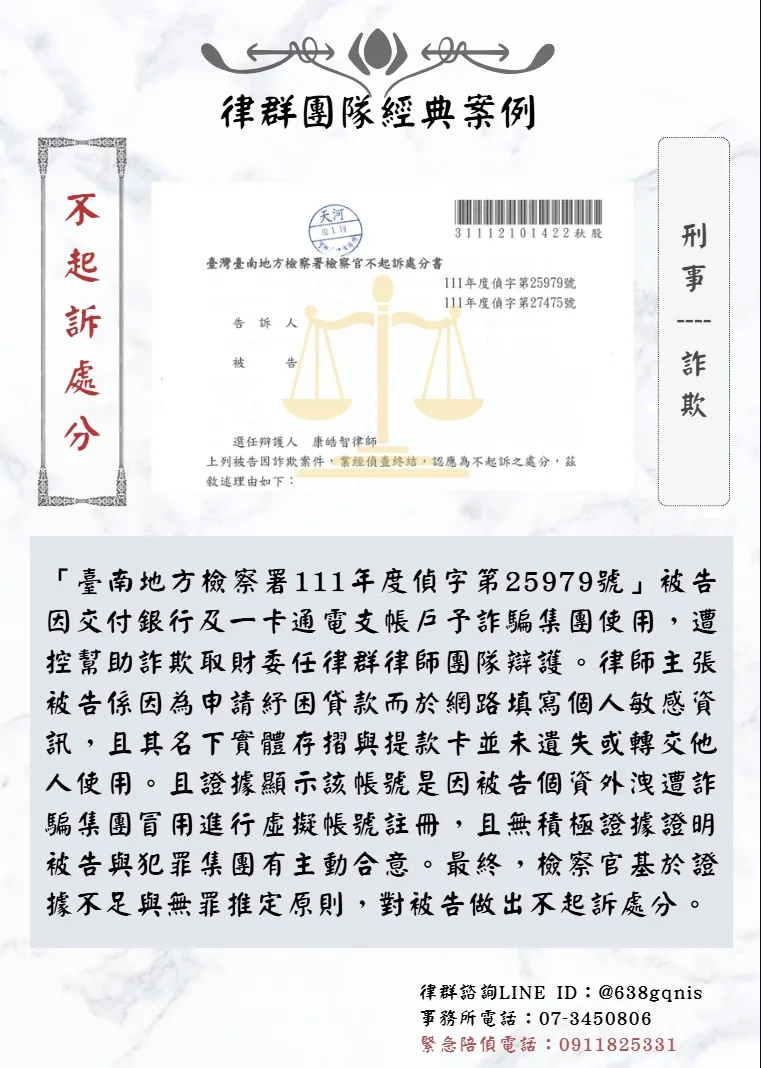 律群團隊經典案例
不起訴處分
刑事----詐欺
天河
31112101422秋股
臺灣臺南地方檢察署檢察官不起訴處分書
111年度偵字第25979號
111年度偵字第27475號
告訴人
被告
選任辯護人 康皓智律師
上列被告因詐欺案件,業經偵查終結,認應為不起訴之處分,茲
敘述理由如下:
「臺南地方檢察署111年度偵字第25979號」被告
因交付銀行及一卡通電支帳戶予詐騙集團使用,遭
控幫助詐欺取財委任律群律師團隊辯護。律師主張
被告係因為申請紓困貸款而於網路填寫個人敏感資
訊,且其名下實體存摺與提款卡並未遺失或轉交他
人使用。且證據顯示該帳號是因被告個資外洩遭詐
騙集團冒用進行虛擬帳號註冊,且無積極證據證明
被告與犯罪集團有主動合意。最終,檢察官基於證
據不足與無罪推定原則,對被告做出不起訴處分。
律群諮詢LINE ID:@638gqnis
事務所電話:07-3450806
緊急陪偵電話:0911825331